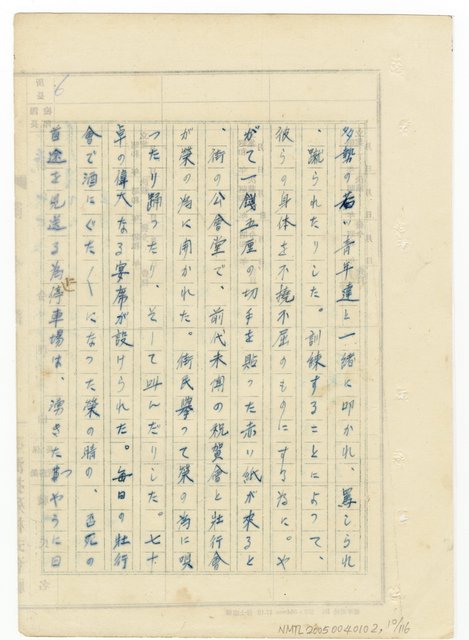 多勢の若い青年達と一緒に叩かれ、罵しられ
、蹴られたりした。訓練することによって、
彼らの身体を不撓不屈のものにする為に。や
がて一銭五厘の切手を貼った赤い紙が来ると
、街の公會堂で、前代未聞の祝賀會と壮行會
が榮の為に開かれた。街民擧って榮の為に唄
つたり踊つたり、そして叫んだりした。七十
卓の偉大なる宴席が設けられた。毎日の壮行
會で酒にぐた〱になつた榮の時の、必死の
首途を見送る為に停車場は、湧きたつやうに日
6
NMTL20050040102, 10/116